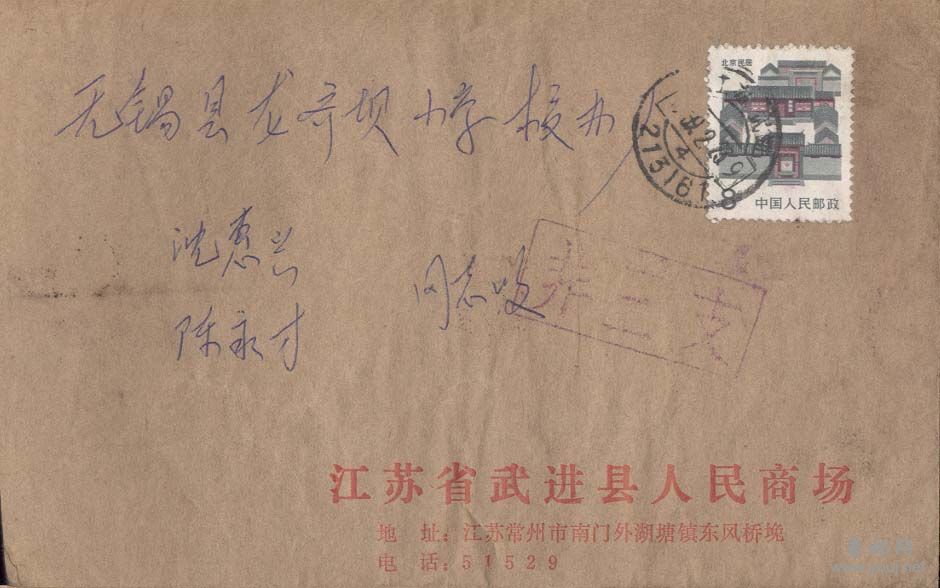 无锡县龙奇坝小学校办厂
沈惠兴
陈永才
同志收
北京民居
8
中国人民邮政
213161
江苏省武进县人民商场
地 址：江苏常州市南门外湖塘镇东风桥堍
电 话：51529
www.youj.net